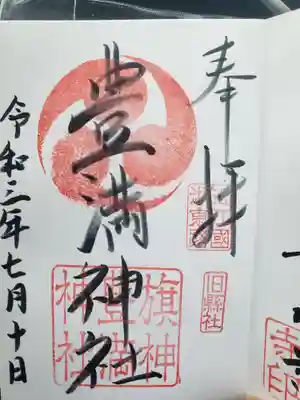 奉拝
旧縣社
豊満神社
旗神
豊満
神社
令和三年七月十日
寺印